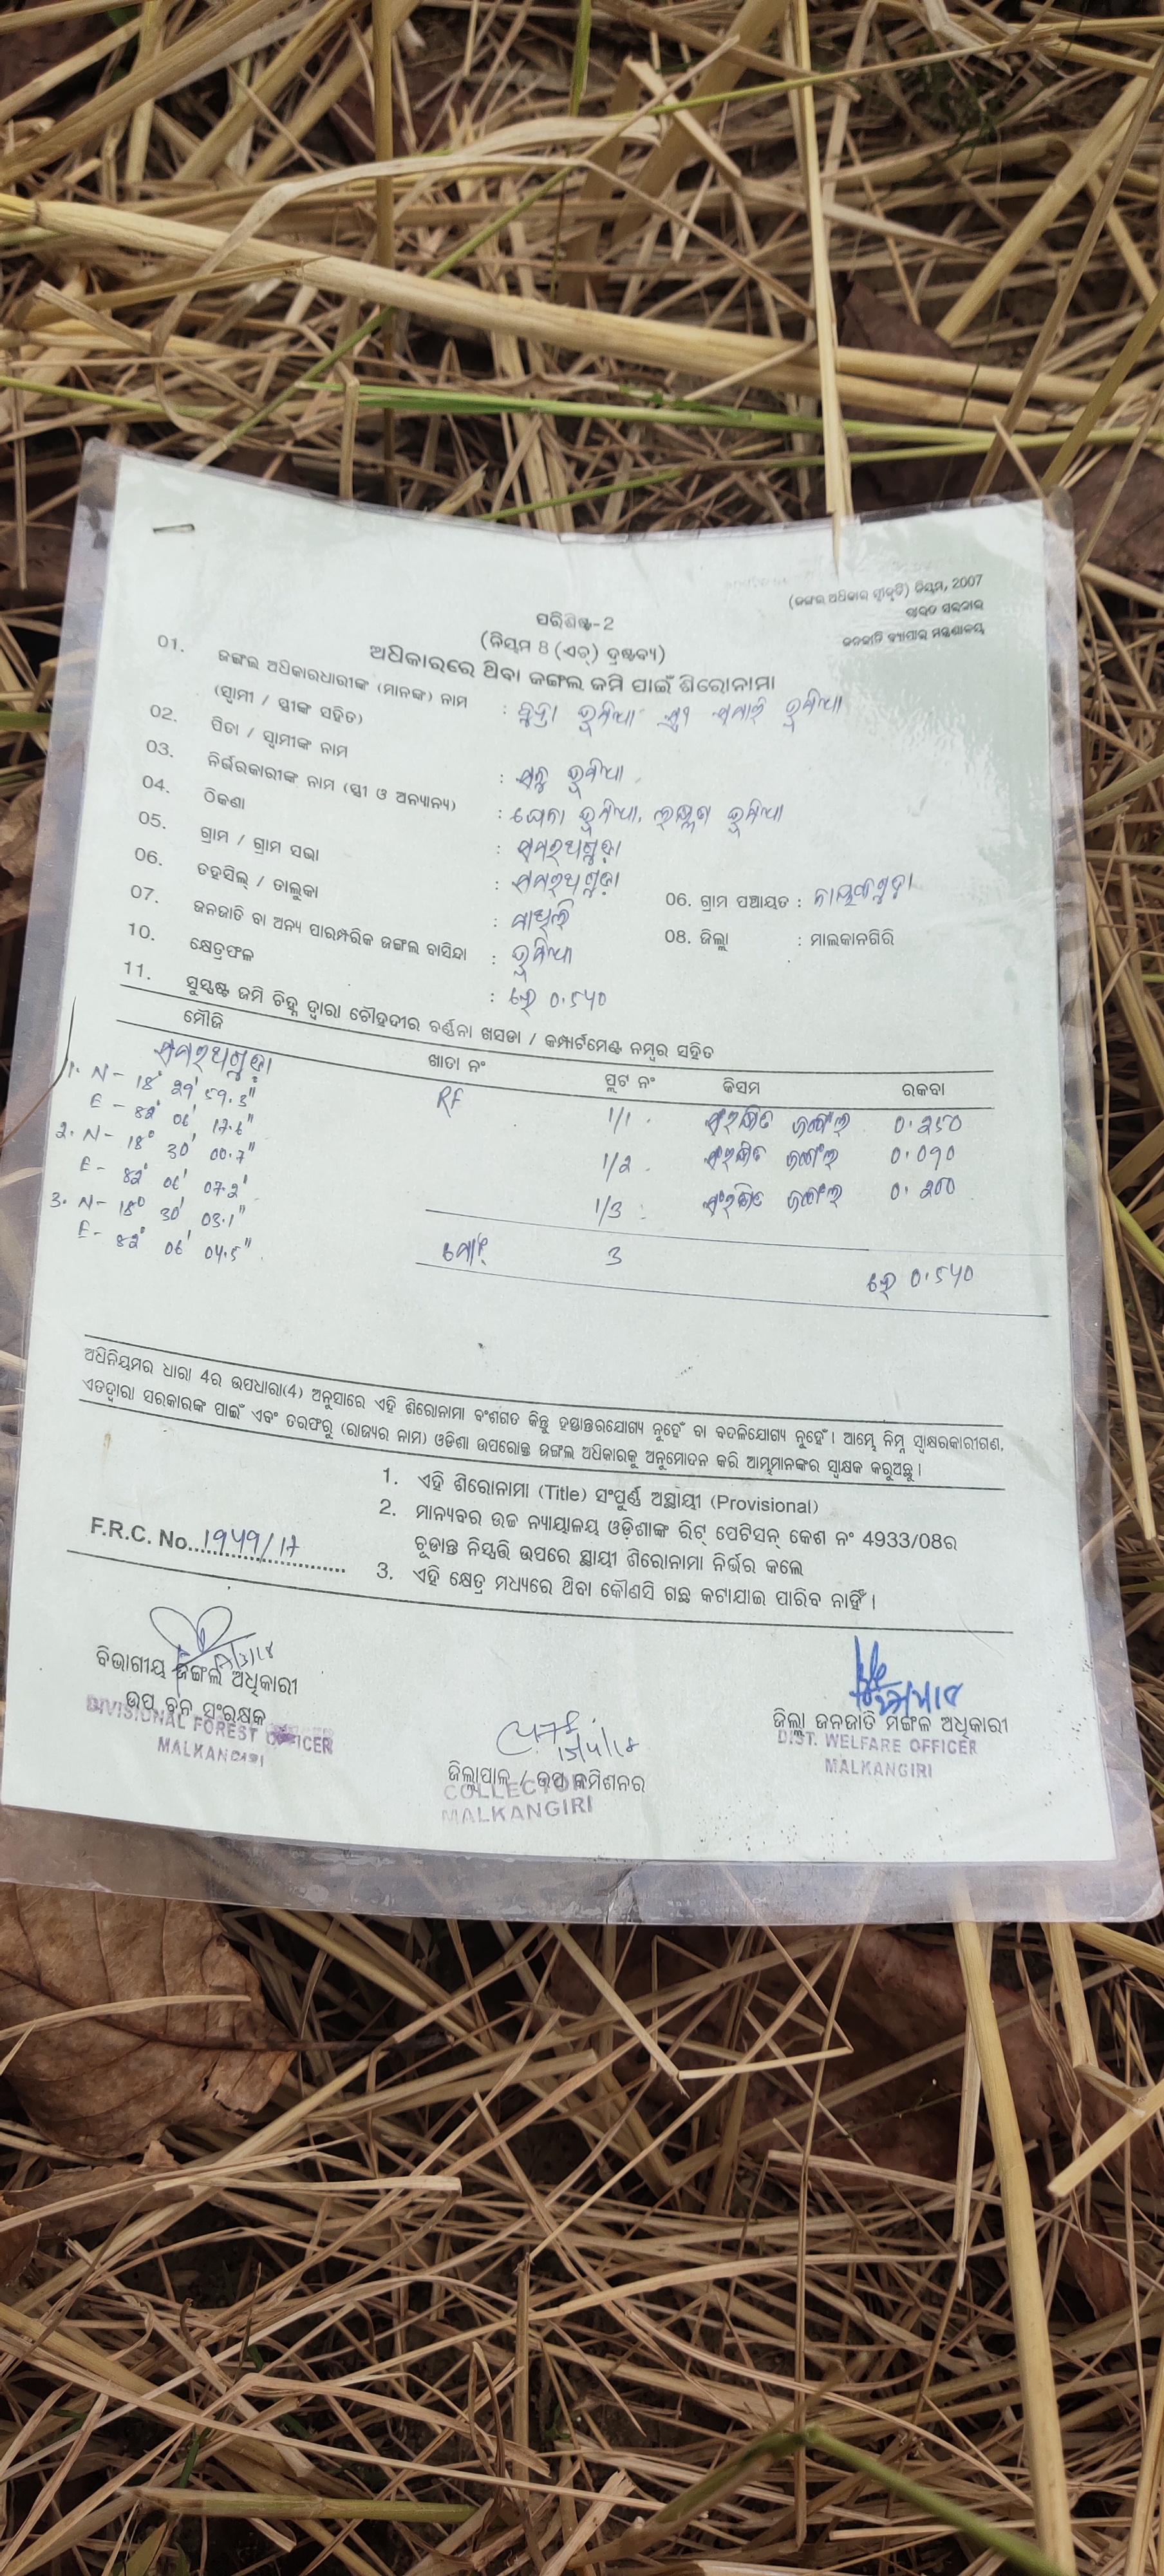 (ଜଙ୍ଗଲ ଅଧିକାର ସ୍ୱୀକୃତି) ନିୟମ, 2007
ଭାରତ ସରକାର
ଜନଜାତି ବ୍ୟାପାର ମନ୍ତ୍ରଣାଳୟ
ପରିଶିଷ୍ଟ-2
(ନିୟମ 8 (ଏଚ୍) ଦ୍ରଷ୍ଟବ୍ୟ)
ଅଧିକାରରେ ଥିବା ଜଙ୍ଗଲ ଜମି ପାଇଁ ଶିରୋନାମା
01. ଜଙ୍ଗଲ ଅଧିକାରଧାରୀଙ୍କ (ମାନଙ୍କ) ନାମ :
(ସ୍ୱାମୀ / ସ୍ତ୍ରୀଙ୍କ ସହିତ)
02. ପିତା / ସ୍ୱାମୀଙ୍କ ନାମ :
03. ନିର୍ଭରକାରୀଙ୍କ ନାମ (ସ୍ତ୍ରୀ ଓ ଅନ୍ୟାନ୍ୟ) :
04. ଠିକଣା :
05. ଗ୍ରାମ / ଗ୍ରାମ ସଭା : 06. ଗ୍ରାମ ପଞ୍ଚାୟତ :
06. ତହସିଲ୍ / ତାଲୁକା : 08. ଜିଲ୍ଲା : ମାଲକାନଗିରି
07. ଜନଜାତି ବା ଅନ୍ୟ ପାରମ୍ପରିକ ଜଙ୍ଗଲ ବାସିନ୍ଦା : ଭୂମିଆ
10. କ୍ଷେତ୍ରଫଳ : ହେ 0.540
11. ସୁସ୍ପଷ୍ଟ ଜମି ଚିହ୍ନ ଦ୍ୱାରା ଚୌହଦୀର ବର୍ଣ୍ଣନା ଖସଡା / କମ୍ପାର୍ଟମେଣ୍ଟ ନମ୍ବର ସହିତ
ମୌଜି ଖାତା ନଂ ପ୍ଲଟ ନଂ କିସମ ରକବା
1. N - 18° 29' 59.3" RF 1/1 ସଂରକ୍ଷିତ ଜଙ୍ଗଲ 0.250
E - 82° 06' 17.6"
2. N - 18° 30' 00.7" 1/2 ସଂରକ୍ଷିତ ଜଙ୍ଗଲ 0.090
E - 82° 06' 07.2"
3. N - 18° 30' 03.1" 1/3 ସଂରକ୍ଷିତ ଜଙ୍ଗଲ 0.200
E - 82° 06' 04.5"
ମୋଟ୍ 3 ହେ 0.540
ଅଧିନିୟମର ଧାରା 4ର ଉପଧାରା(4) ଅନୁସାରେ ଏହି ଶିରୋନାମା ବଂଶଗତ କିନ୍ତୁ ହସ୍ତାନ୍ତରଯୋଗ୍ୟ ନୁହେଁ ବା ବଦଳିଯୋଗ୍ୟ ନୁହେଁ। ଆମ୍ଭେ ନିମ୍ନ ସ୍ୱାକ୍ଷରକାରୀଗଣ,
ଏତଦ୍ଦ୍ୱାରା ସରକାରଙ୍କ ପାଇଁ ଏବଂ ତରଫରୁ (ରାଜ୍ୟର ନାମ) ଓଡିଶା ଉପରୋକ୍ତ ଜଙ୍ଗଲ ଅଧିକାରକୁ ଅନୁମୋଦନ କରି ଆମ୍ଭମାନଙ୍କର ସ୍ୱାକ୍ଷକ କରୁଅଛୁ।
1. ଏହି ଶିରୋନାମା (Title) ସଂପୂର୍ଣ ଅସ୍ଥାୟୀ (Provisional)
2. ମାନ୍ୟବର ଉଚ୍ଚ ନ୍ୟାୟାଳୟ ଓଡ଼ିଶାଙ୍କ ରିଟ୍ ପେଟିସନ୍ କେଶ ନଂ 4933/08ର
ଚୂଡାନ୍ତ ନିସ୍ପତ୍ତି ଉପରେ ସ୍ଥାୟୀ ଶିରୋନାମା ନିର୍ଭର କଲେ
3. ଏହି କ୍ଷେତ୍ର ମଧ୍ୟରେ ଥିବା କୌଣସି ଗଛ କଟାଯାଇ ପାରିବ ନାହିଁ।
F.R.C. No. 1949/17
ବିଭାଗୀୟ ଜଙ୍ଗଲ ଅଧିକାରୀ
ଉପ ବନ ସଂରକ୍ଷକ
DIVISIONAL FOREST OFFICER
MALKANGIRI
15/4/18
ଜିଲ୍ଲାପାଳ / ଉପ କମିଶନର
COLLECTOR
MALKANGIRI
ଜିଲ୍ଲା ଜନଜାତି ମଙ୍ଗଳ ଅଧିକାରୀ
DIST. WELFARE OFFICER
MALKANGIRI